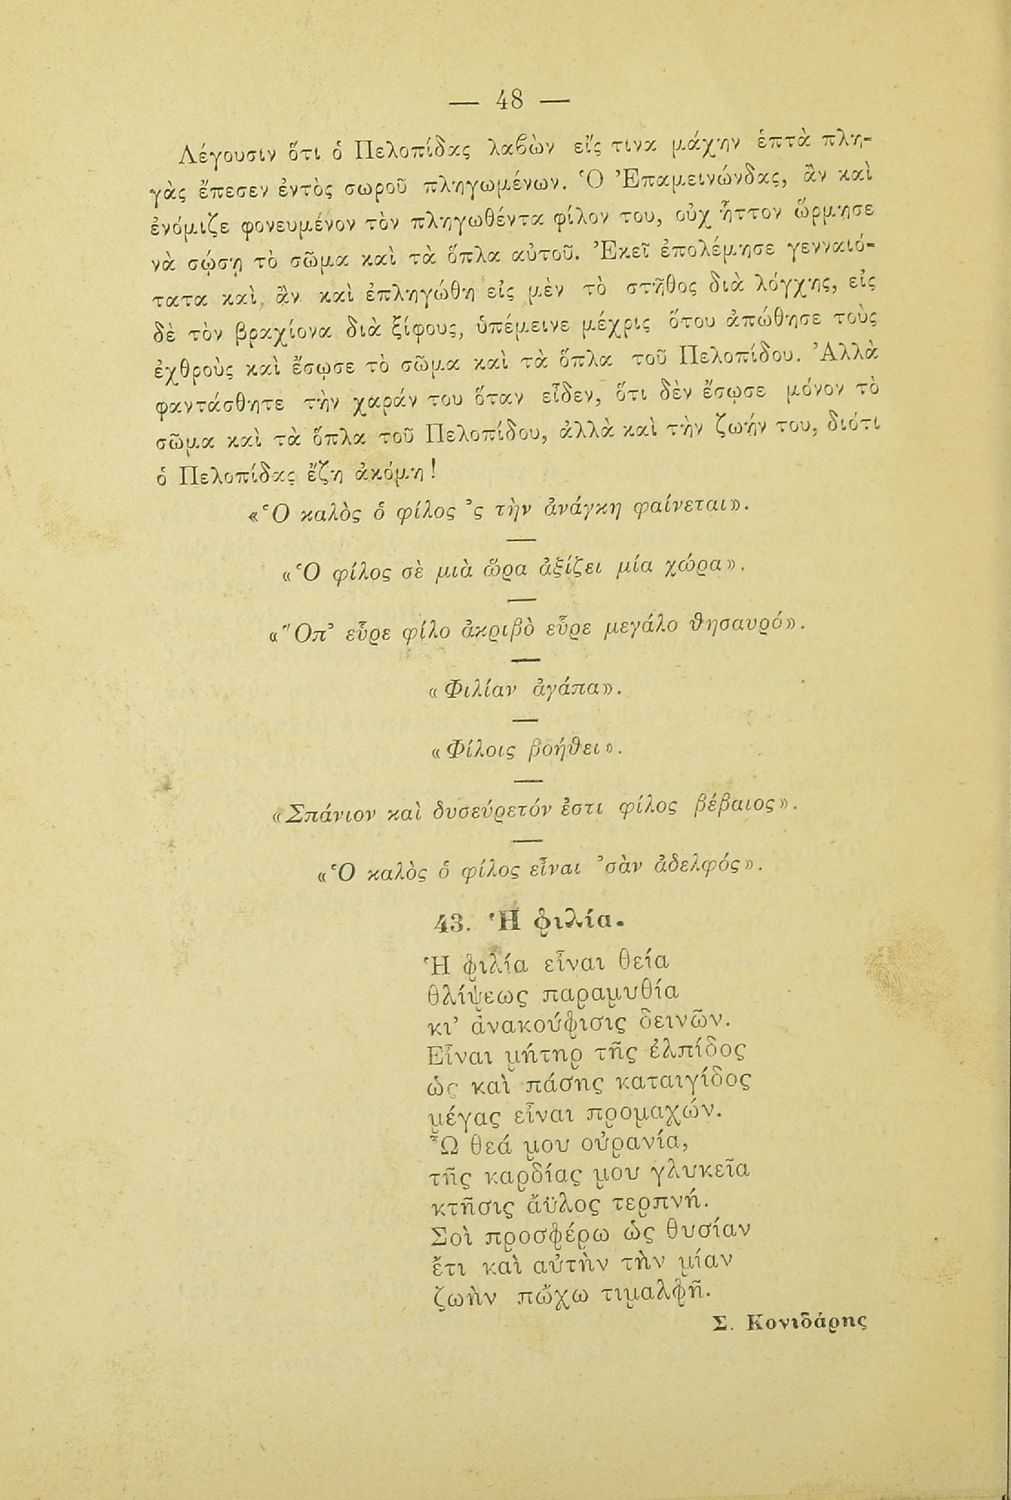 — 48 —
Λέγουσιν ὅτι ὁ Πελοπίδας λαβὼν εἴς τινα μάχην ἑπτὰ πλη-
γὰς ἔπεσεν ἐντὸς σωροῦ πληγωμένων. Ὁ Ἐπαμεινώνδας, ἂν καὶ
ἐνόμιζε φονευμένον τὸν πληγωθέντα φίλον του, οὐχ ἧττον ὥρμησε
νὰ σώσῃ τὸ σῶμα καὶ τὰ ὅπλα αὐτοῦ. Ἐκεῖ ἐπολέμησε γενναιό-
τατα καὶ ἂν καὶ ἐπληγώθη εἰς μὲν τὸ στῆθος διὰ λόγχης, εἰς
δὲ τὸν βραχίονα διὰ ξίφους, ὑπέμεινε μέχρις ὅτου ἀπώθησε τοὺς
ἐχθροὺς καὶ ἔσωσε τὸ σῶμα καὶ τὰ ὅπλα τοῦ Πελοπίδου. Ἀλλὰ
φαντάσθητε τὴν χαράν του ὅταν εἶδεν, ὅτι δὲν ἔσωσε μόνον τὸ
σῶμα καὶ τὰ ὅπλα τοῦ Πελοπίδου, ἀλλὰ καὶ τὴν ζωήν του, διότι
ὁ Πελοπίδας ἔζη ἀκόμη!
«Ὁ καλὸς ὁ φίλος 'ς τὴν ἀνάγκη φαίνεται».
«Ὁ φίλος σὲ μιὰ ὥρα ἀξίζει μία χώρα».
«Ὅπ' εὗρε φίλο ἀκριβὸ εὗρε μεγάλο θησαυρό».
«Φιλίαν ἀγάπα».
«Φίλοις βοήθει».
«Σπάνιον καὶ δυσεύρετόν ἐστι φίλος βέβαιος».
«Ὁ καλὸς ὁ φίλος εἶναι 'σὰν ἀδελφός».
43. Ἡ φιλία.
Ἡ φιλία εἶναι θεία
θλίψεως παραμυθία
κι' ἀνακούφισις δεινῶν.
Εἶναι μήτηρ τῆς ἐλπίδος
ὡς καὶ πάσης καταιγίδος
μέγας εἶναι προμαχών.
Ὦ θεά μου οὐρανία,
τῆς καρδίας μου γλυκεῖα
κτῆσις ἄϋλος τερπνή.
Σοὶ προσφέρω ὡς θυσίαν
ἔτι καὶ αὐτὴν τὴν μίαν
ζωὴν πὤχω τιμαλφῆ.
Σ. Κονιδάρης